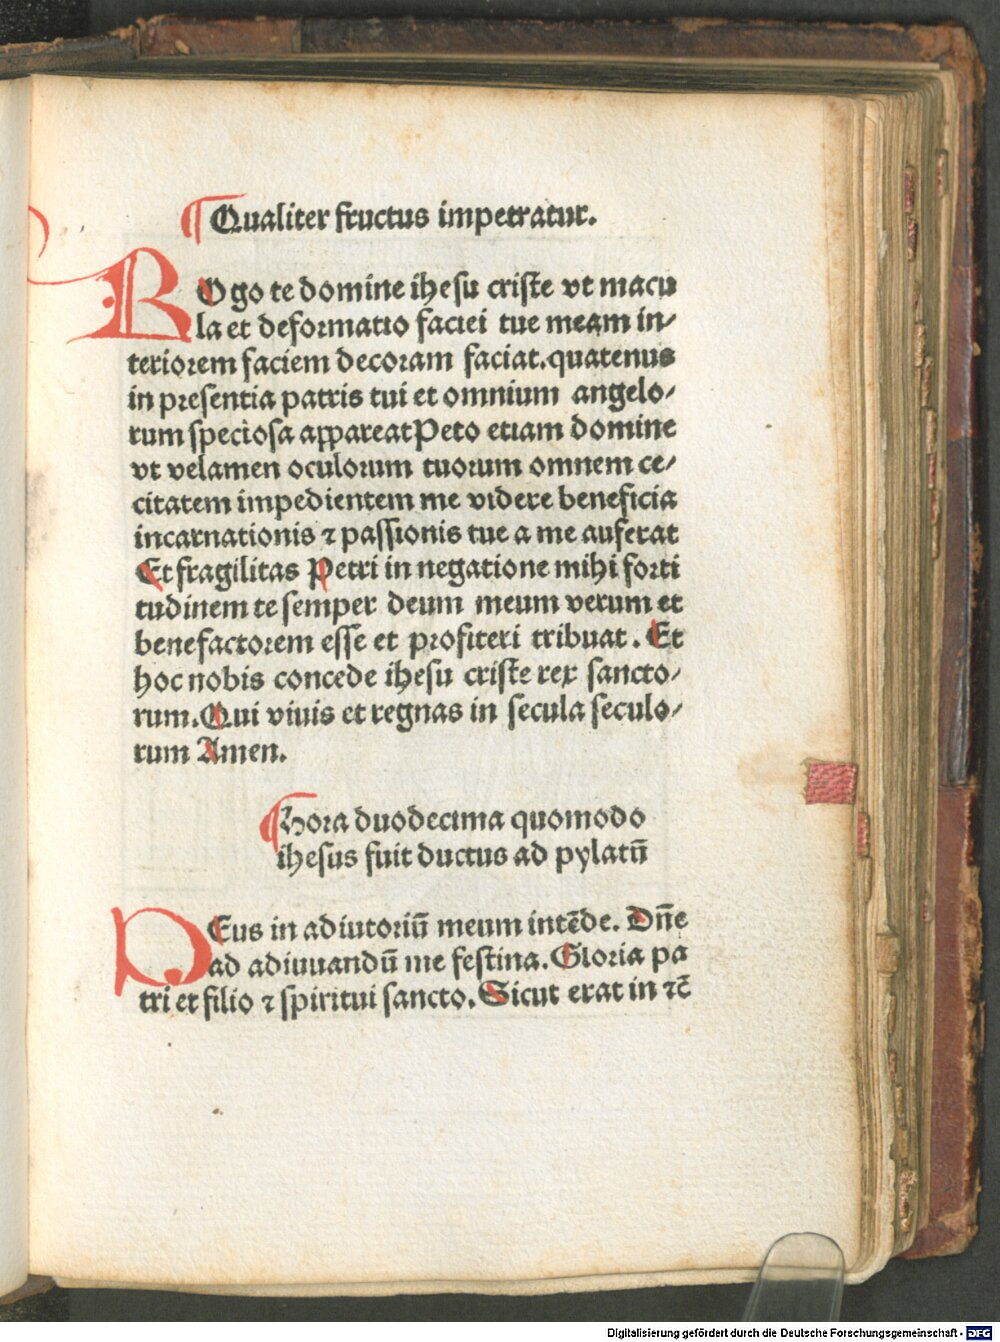 ¶Qualiter fructus impetratur.
ROgo te domine ihesu criste vt macu
la et deformatio faciei tue meam in⸗
teriorem faciem decoram faciat.quatenus
in presentia patris tui et omnium angelo⸗
rum speciosa appareat Peto etiam domine
vt velamen oculorum tuorum omnem ce⸗
citatem impedientem me videre beneficia
incarnationis ⁊ passionis tue a me auferat
Et fragilitas Petri in negatione mihi forti
tudinem te semper deum meum verum et
benefactorem esse et profiteri tribuat. Et
hoc nobis concede ihesu criste rex sancto⸗
rum.Qui viuis et regnas in secula seculo⸗
rum Amen.
¶Hora duodecima quomodo
ihesus fuit ductus ad pylatū
DEus in adiutoriū meum intēde. Dn̄e
ad adiuuandū me festina. Gloria pa
tri et filio ⁊ spiritui sancto. Sicut erat in ⁊c̄
Digitalisierung gefördert durch die Deutsche Forschungsgemeinschaft - DFG